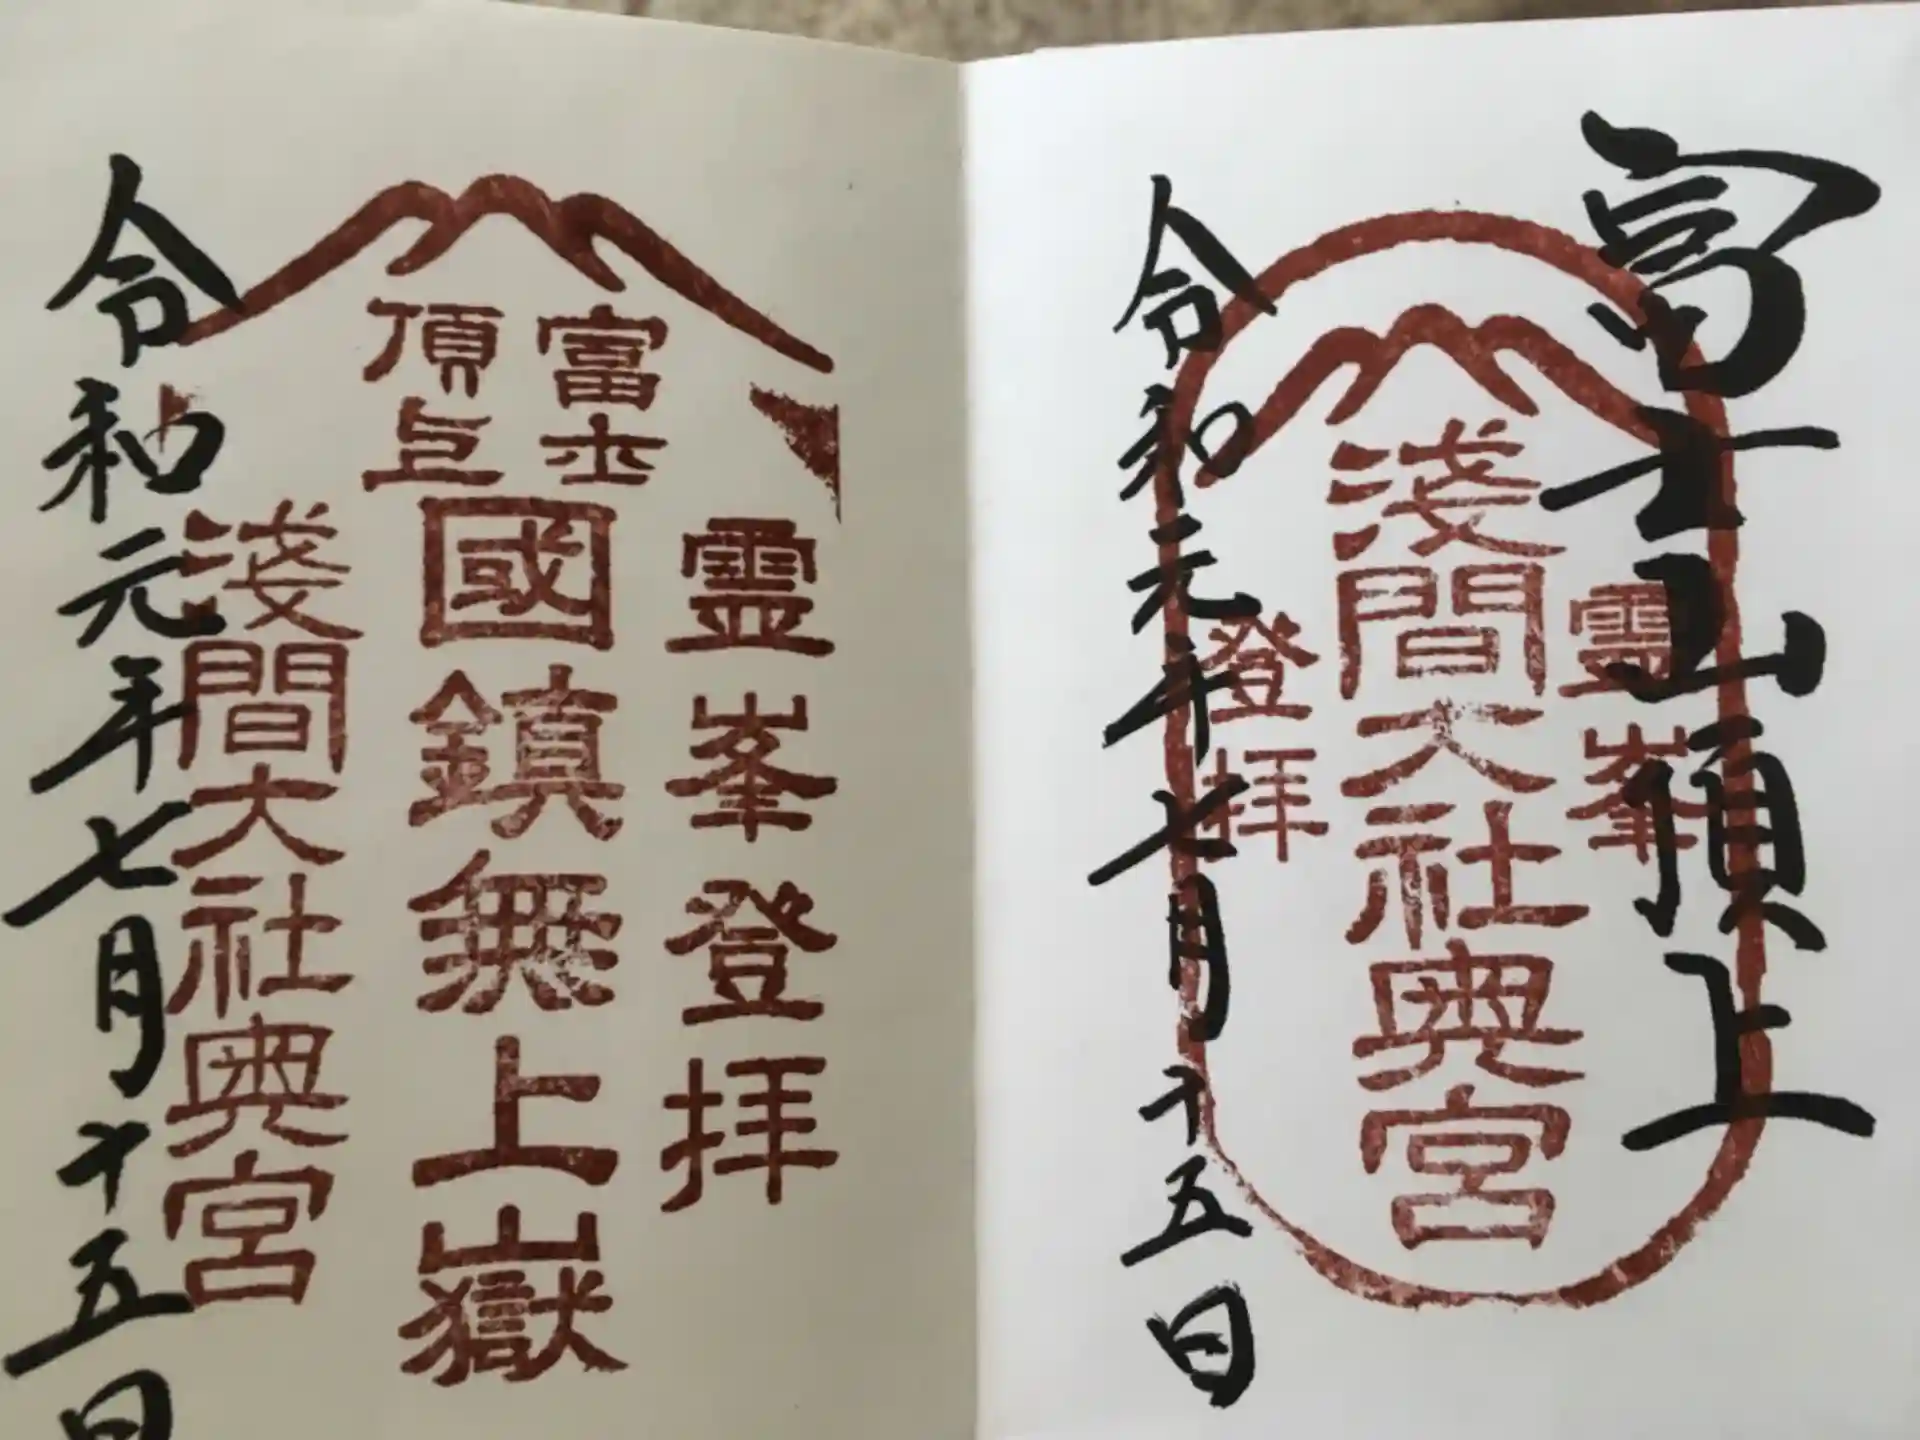 富士山頂上
霊峯
淺間大社奥宮
登拝
令和元年七月十五日
霊峯登拝
富士
頂上
國鎮無上嶽
淺間大社奥宮
令和元年七月十五日